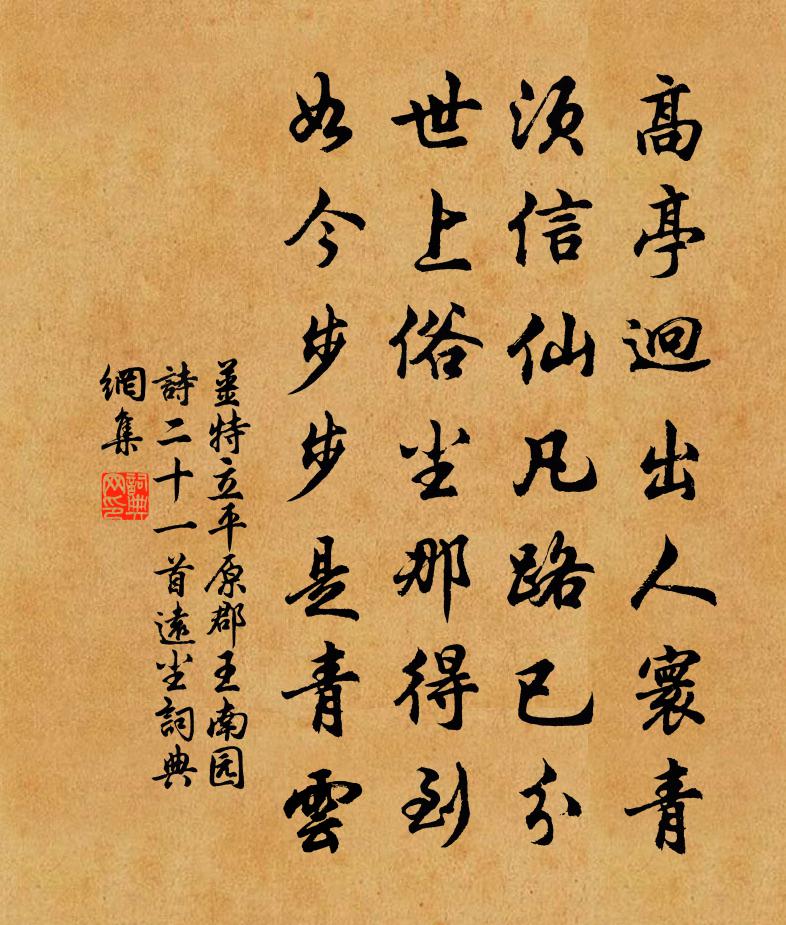 高亭迥出人寰青
須信仙凡路已分
世上俗尘那得到
如今步步是青雲
姜特立平原郡王南园
詩二十一首遠尘詞典
網集
詞典网印